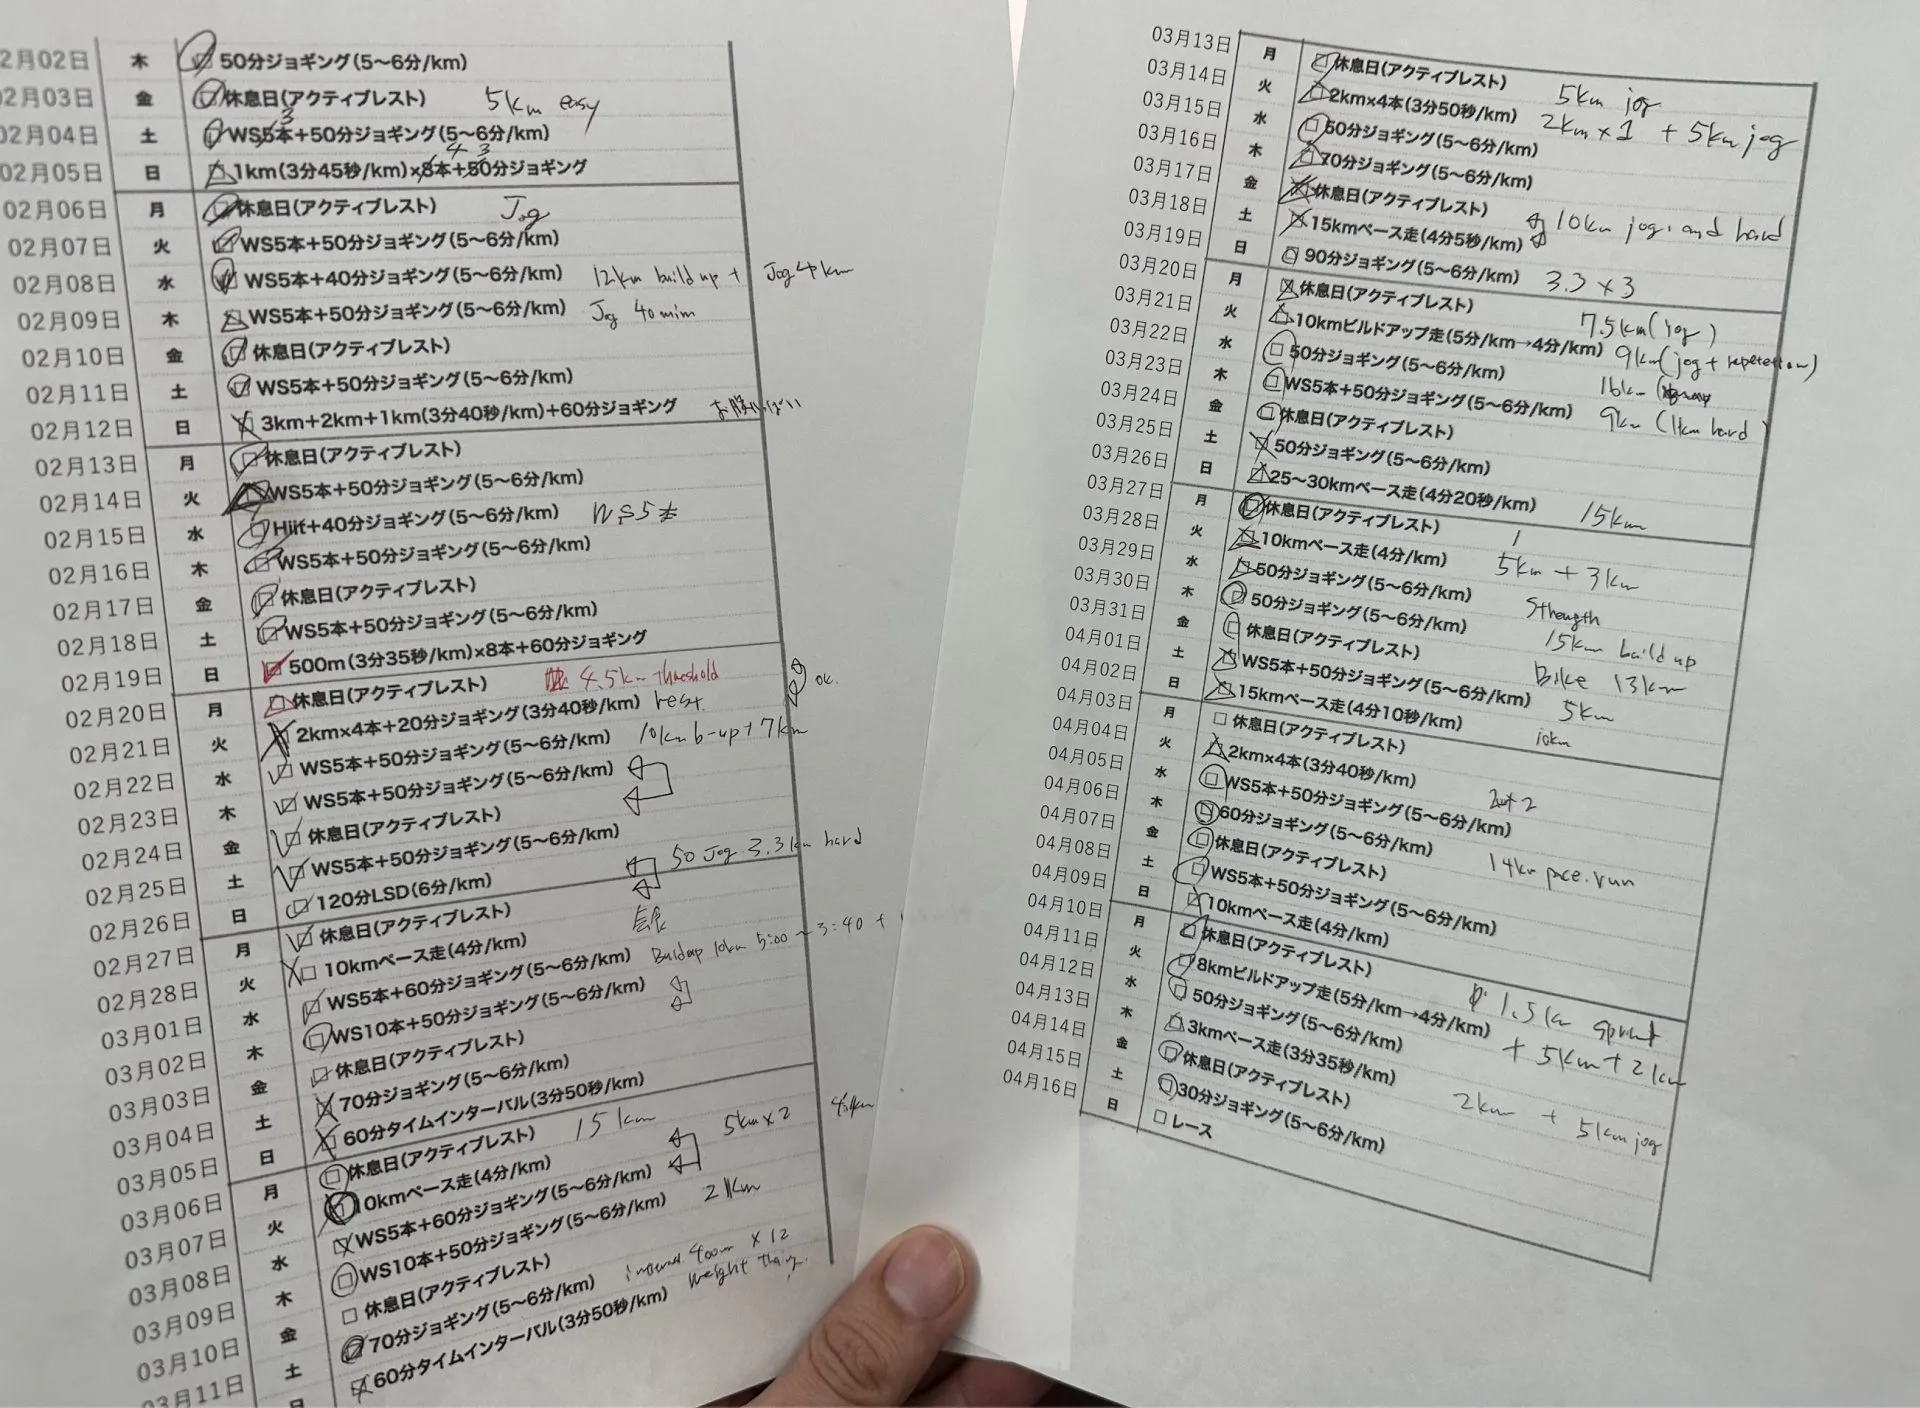 2月02日 木 50分ジョギング(5〜6分/km)
02月03日 金 休息日(アクティブレスト) 5km easy
02月04日 土 WS5本+50分ジョギング(5〜6分/km) 3
02月05日 日 1km(3分45秒/km)×8本+50分ジョギング 4 3
02月06日 月 休息日(アクティブレスト) Jog
02月07日 火 WS5本+50分ジョギング(5〜6分/km)
02月08日 水 WS5本+40分ジョギング(5〜6分/km) 12km build up + Jog 4km
02月09日 木 WS5本+50分ジョギング(5〜6分/km) Jog 40min
02月10日 金 休息日(アクティブレスト)
02月11日 土 WS5本+50分ジョギング(5〜6分/km)
02月12日 日 3km+2km+1km(3分40秒/km)+60分ジョギング お腹いっぱい
02月13日 月 休息日(アクティブレスト)
02月14日 火 WS5本+50分ジョギング(5〜6分/km)
02月15日 水 Hiit+40分ジョギング(5〜6分/km) WS5本
02月16日 木 WS5本+50分ジョギング(5〜6分/km)
02月17日 金 休息日(アクティブレスト)
02月18日 土 WS5本+50分ジョギング(5〜6分/km)
02月19日 日 500m(3分35秒/km)×8本+60分ジョギング
02月20日 月 休息日(アクティブレスト) 4.5km threshold
02月21日 火 2km×4本+20分ジョギング(3分40秒/km) rest. ok.
02月22日 水 WS5本+50分ジョギング(5〜6分/km) 10km b-up+7km
02月23日 木 WS5本+50分ジョギング(5〜6分/km)
02月24日 金 休息日(アクティブレスト)
02月25日 土 WS5本+50分ジョギング(5〜6分/km)
02月26日 日 120分LSD(6分/km) 50 Jog 3.3km hard
02月27日 月 休息日(アクティブレスト)
02月28日 火 10kmペース走(4分/km)
03月01日 水 WS5本+60分ジョギング(5〜6分/km) Buildup 10km 5:00〜3:40 +
03月02日 木 WS10本+50分ジョギング(5〜6分/km)
03月03日 金 休息日(アクティブレスト)
03月04日 土 70分ジョギング(5〜6分/km)
03月05日 日 60分タイムインターバル(3分50秒/km)
03月06日 月 休息日(アクティブレスト) 15km
03月07日 火 10kmペース走(4分/km) 5km×2
03月08日 水 WS5本+60分ジョギング(5〜6分/km)
03月09日 木 WS10本+50分ジョギング(5〜6分/km) 21km
03月10日 金 休息日(アクティブレスト)
03月11日 土 70分ジョギング(5〜6分/km) interval 400m × 12
日 60分タイムインターバル(3分50秒/km) weight
03月13日 月 休息日(アクティブレスト) 5km jog
03月14日 火 2km×4本(3分50秒/km) 2km×1 + 5km jog
03月15日 水 50分ジョギング(5〜6分/km)
03月16日 木 70分ジョギング(5〜6分/km)
03月17日 金 休息日(アクティブレスト) 10km jog. and hard
03月18日 土 15kmペース走(4分5秒/km)
03月19日 日 90分ジョギング(5〜6分/km) 3.3 × 3
03月20日 月 休息日(アクティブレスト) 7.5km(jog)
03月21日 火 10kmビルドアップ走(5分/km→4分/km) 9km(jog+repetetion)
03月22日 水 50分ジョギング(5〜6分/km) 16km
03月23日 木 WS5本+50分ジョギング(5〜6分/km) 9km (1km hard)
03月24日 金 休息日(アクティブレスト)
03月25日 土 50分ジョギング(5〜6分/km)
03月26日 日 25〜30kmペース走(4分20秒/km) 15km
03月27日 月 休息日(アクティブレスト)
03月28日 火 10kmペース走(4分/km) 5km + 3km
03月29日 水 50分ジョギング(5〜6分/km) Strength
03月30日 木 50分ジョギング(5〜6分/km) 15km build up
03月31日 金 休息日(アクティブレスト) Bike 13km
04月01日 土 WS5本+50分ジョギング(5〜6分/km) 5km
04月02日 日 15kmペース走(4分10秒/km) 10km
04月03日 月 休息日(アクティブレスト)
04月04日 火 2km×4本(3分40秒/km)
04月05日 水 WS5本+50分ジョギング(5〜6分/km)
04月06日 木 60分ジョギング(5〜6分/km) 14km pace.run
04月07日 金 休息日(アクティブレスト)
04月08日 土 WS5本+50分ジョギング(5〜6分/km)
04月09日 日 10kmペース走(4分/km)
04月10日 月 休息日(アクティブレスト)
04月11日 火 8kmビルドアップ走(5分/km→4分/km) 1.5km sprint
04月12日 水 50分ジョギング(5〜6分/km) + 5km+2km
04月13日 木 3kmペース走(3分35秒/km)
04月14日 金 休息日(アクティブレスト) 2km + 5km jog
04月15日 土 30分ジョギング(5〜6分/km)
04月16日 日 レース